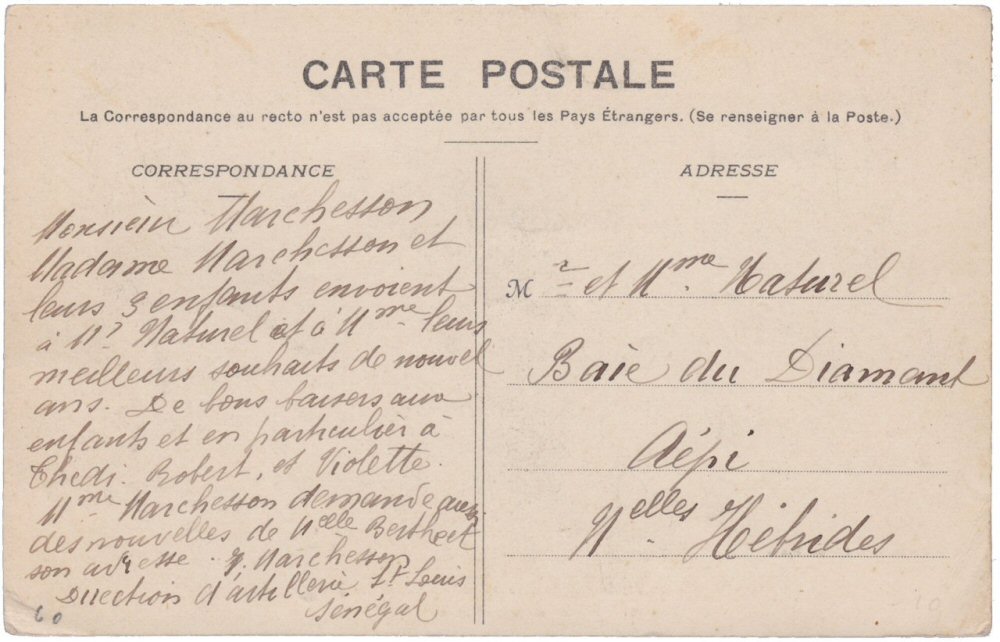 CARTE POSTALE
La Correspondance au recto n'est pas acceptée par tous les Pays Étrangers. (Se renseigner à la Poste.)
CORRESPONDANCE
Monsieur Marchesson
Madame Marchesson et
leurs 3 enfants envoient
à Mr Naturel et à Mme leurs
meilleurs souhaits de nouvel
ans. De bons baisers aux
enfants et en particulier à
Thedi. Robert, et Violette.
Mme Marchesson demande aussi
des nouvelles de Melle Berthe et
son adresse. Marchesson
Direction d'artillerie St Louis
Sénégal
60
ADRESSE
Mr et Mme Naturel
Baie du Diamant
Aépi
Nelles Hébrides